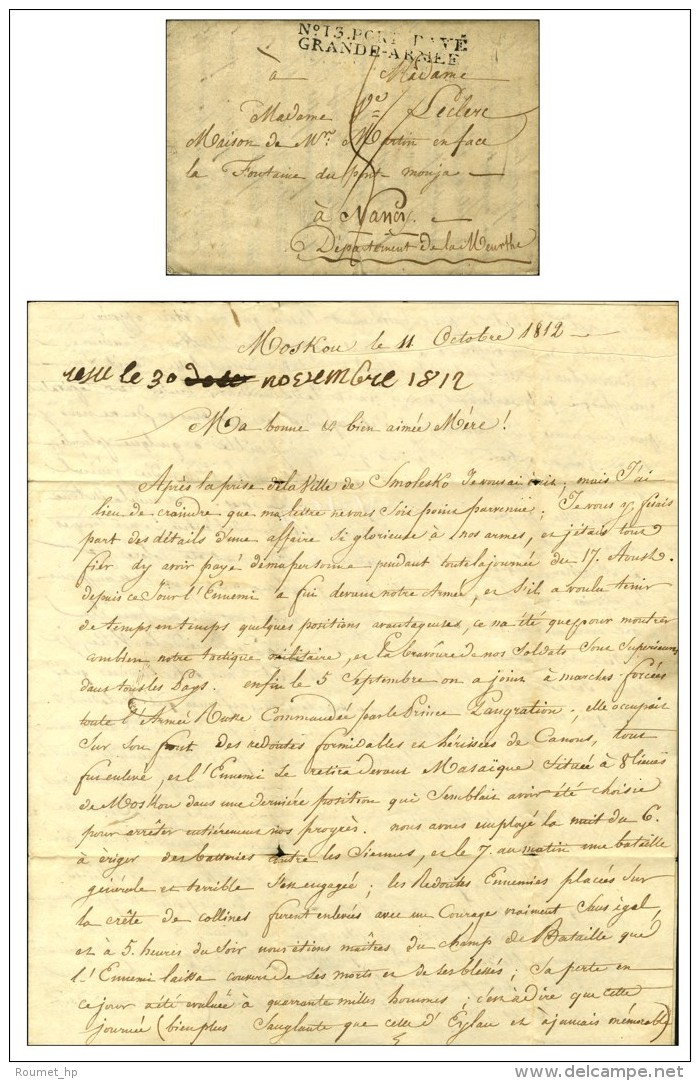 No. 13. PORT PAYÉ
GRANDE-ARMÉE
à Madame
Madame Ve Leclerc
Maison de Mr. Martin en face
la Fontaine du pont mouja
à Nancy.
Département de la Meurthe
Moskou le 11 Octobre 1812
reçu le 30 novembre 1812
Ma bonne et bien aimée Mère!
Après la prise de la Ville de Smolesko Je vous ai écrit, mais J'ai
lieu de craindre que ma lettre ne vous soit point parvenue; Je vous y faisais
part des détails d'une affaire si glorieuse à nos armes, et j'étais tout
fier d'y avoir payé de ma personne pendant toute la journée du 17. Aoust.
depuis ce Jour l'Ennemi a fui devant notre Armée, et s'il a voulu tenir
de temps en temps quelques positions avantageuses, ce n'a été que pour montrer
combien notre tactique militaire, et la bravoure de nos Soldats sont Superieurs
dans tous les Pays. enfin le 5 Septembre on a joint à marches forcées
toute l'Armée Russe Commandée par le Prince Paugration, elle occupait
Sur son front des redoutes formidables et hérissées de Canons, tout
fut enlevé, et l'Ennemi se retira devant Masaïque située à 8 lieuës
de Moskou dans une dernière position qui Semblait avoir été choisie
pour arrêter entièrement nos progrès. nous avons employé la nuit du 6.
à ériger des batteries contre les Siennes, et le 7. au matin une bataille
générale et terrible s'est engagée; les Redoutes Ennemies placées sur
la crête de collines furent enlevées avec un Courage vraiment sans égal,
et à 5. heures du Soir nous étions maîtres du champ de Bataille que
l'Ennemi laissa couvert de ses morts et de ses blessés; sa perte en
ce jour a été évaluée à quarrante milles hommes; c'est à dire que cette
journée (bien plus Sanglante que celle d'Eylau et à jamais mémorable)
Roumet_hp
delcampe.net